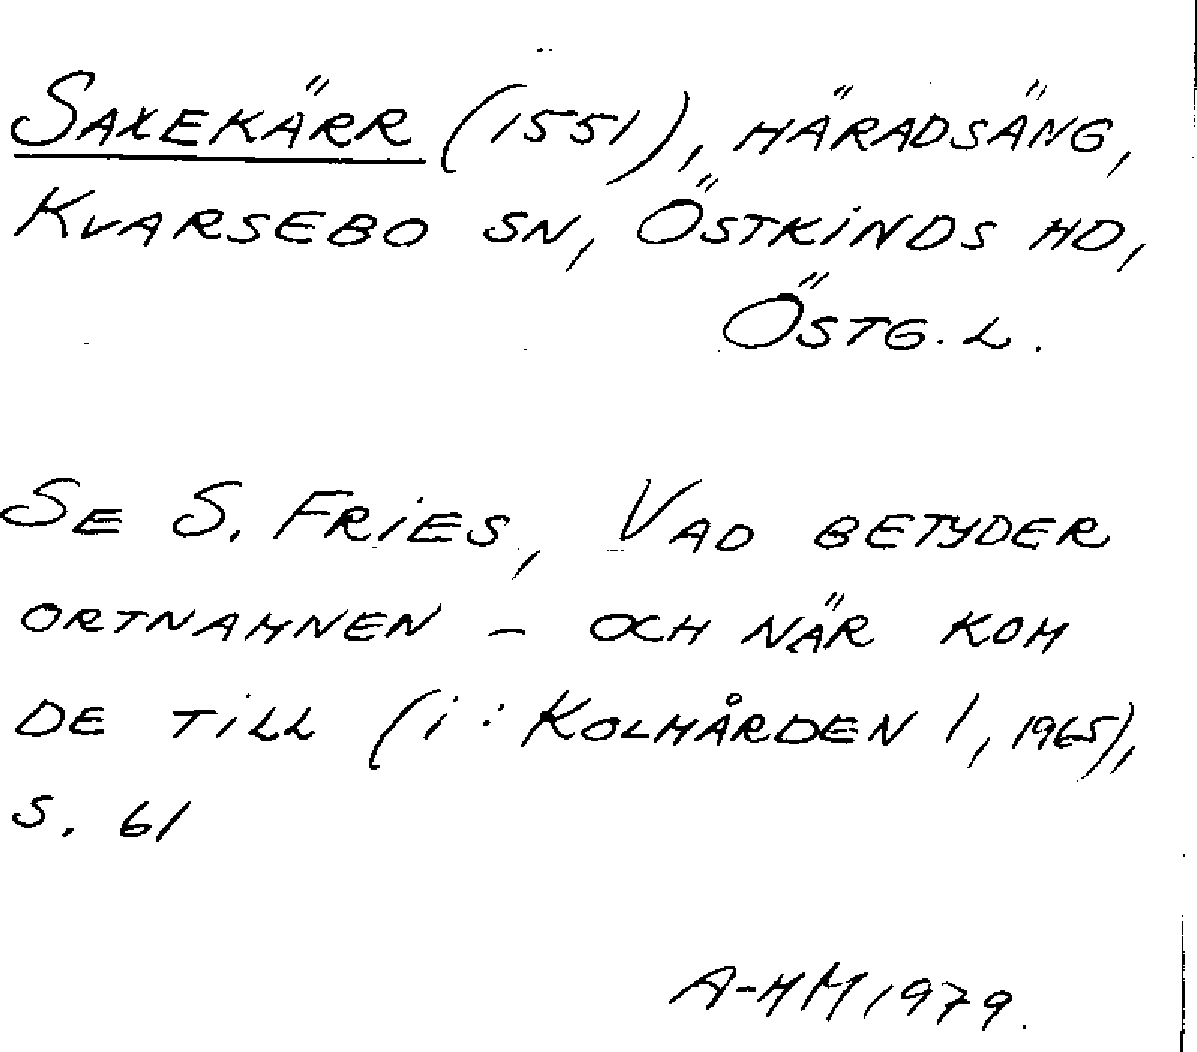 SAXEKÄRR (1551), HÄRADSÄNG,
KVARSEBO SN, ÖSTKINDS HD,
ÖSTG. L.
SE S. FRIES, VAD BETYDER
ORTNAMNEN – OCH NÄR KOM
DE TILL (i: KOLMÅRDEN 1, 1965),
S. 61
A-HM 1979.